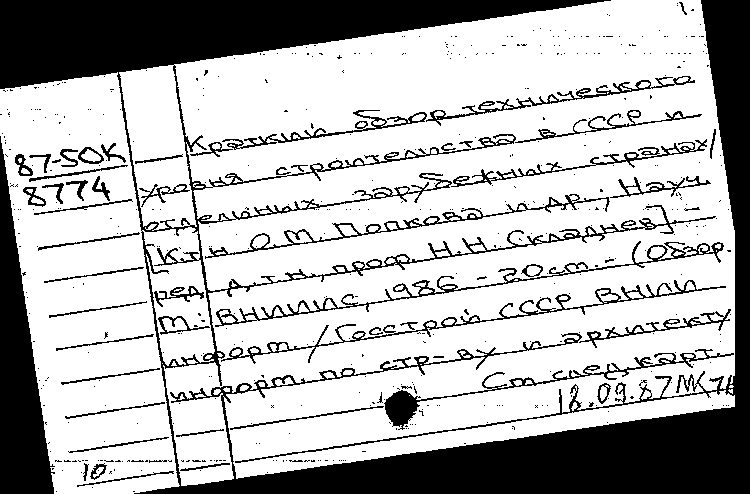 1.
Краткий обзор технического
87-50К
8774
уровня строительства в СССР и
отдельных зарубежных странах/
[К.т.н О.М. Попкова и др.; Науч.
ред. д.т.н., проф. Н.Н. Складнев]. -
М.: ВНИИИС, 1986 - 20 ст. - (Обзор.
информ. / Госстрой СССР, ВНИИ
информ. по стр-ву и архитекту
См след. карт.
18.09.87
10